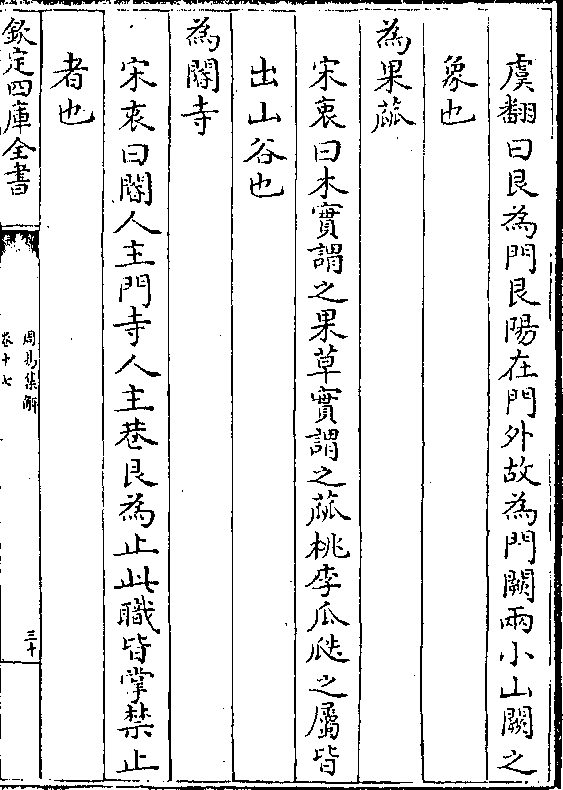 虞翻曰艮為門艮陽在門外故為門闕兩小山闕之
象也
為果蓏
宋衷曰木實謂之果草實謂之蓏桃李瓜瓞之屬皆
出山谷也
為閽寺
宋衷曰閽人主門寺人主巷艮為止此職皆掌禁止
者也
欽定四庫全書
周易集解
卷十七
三十